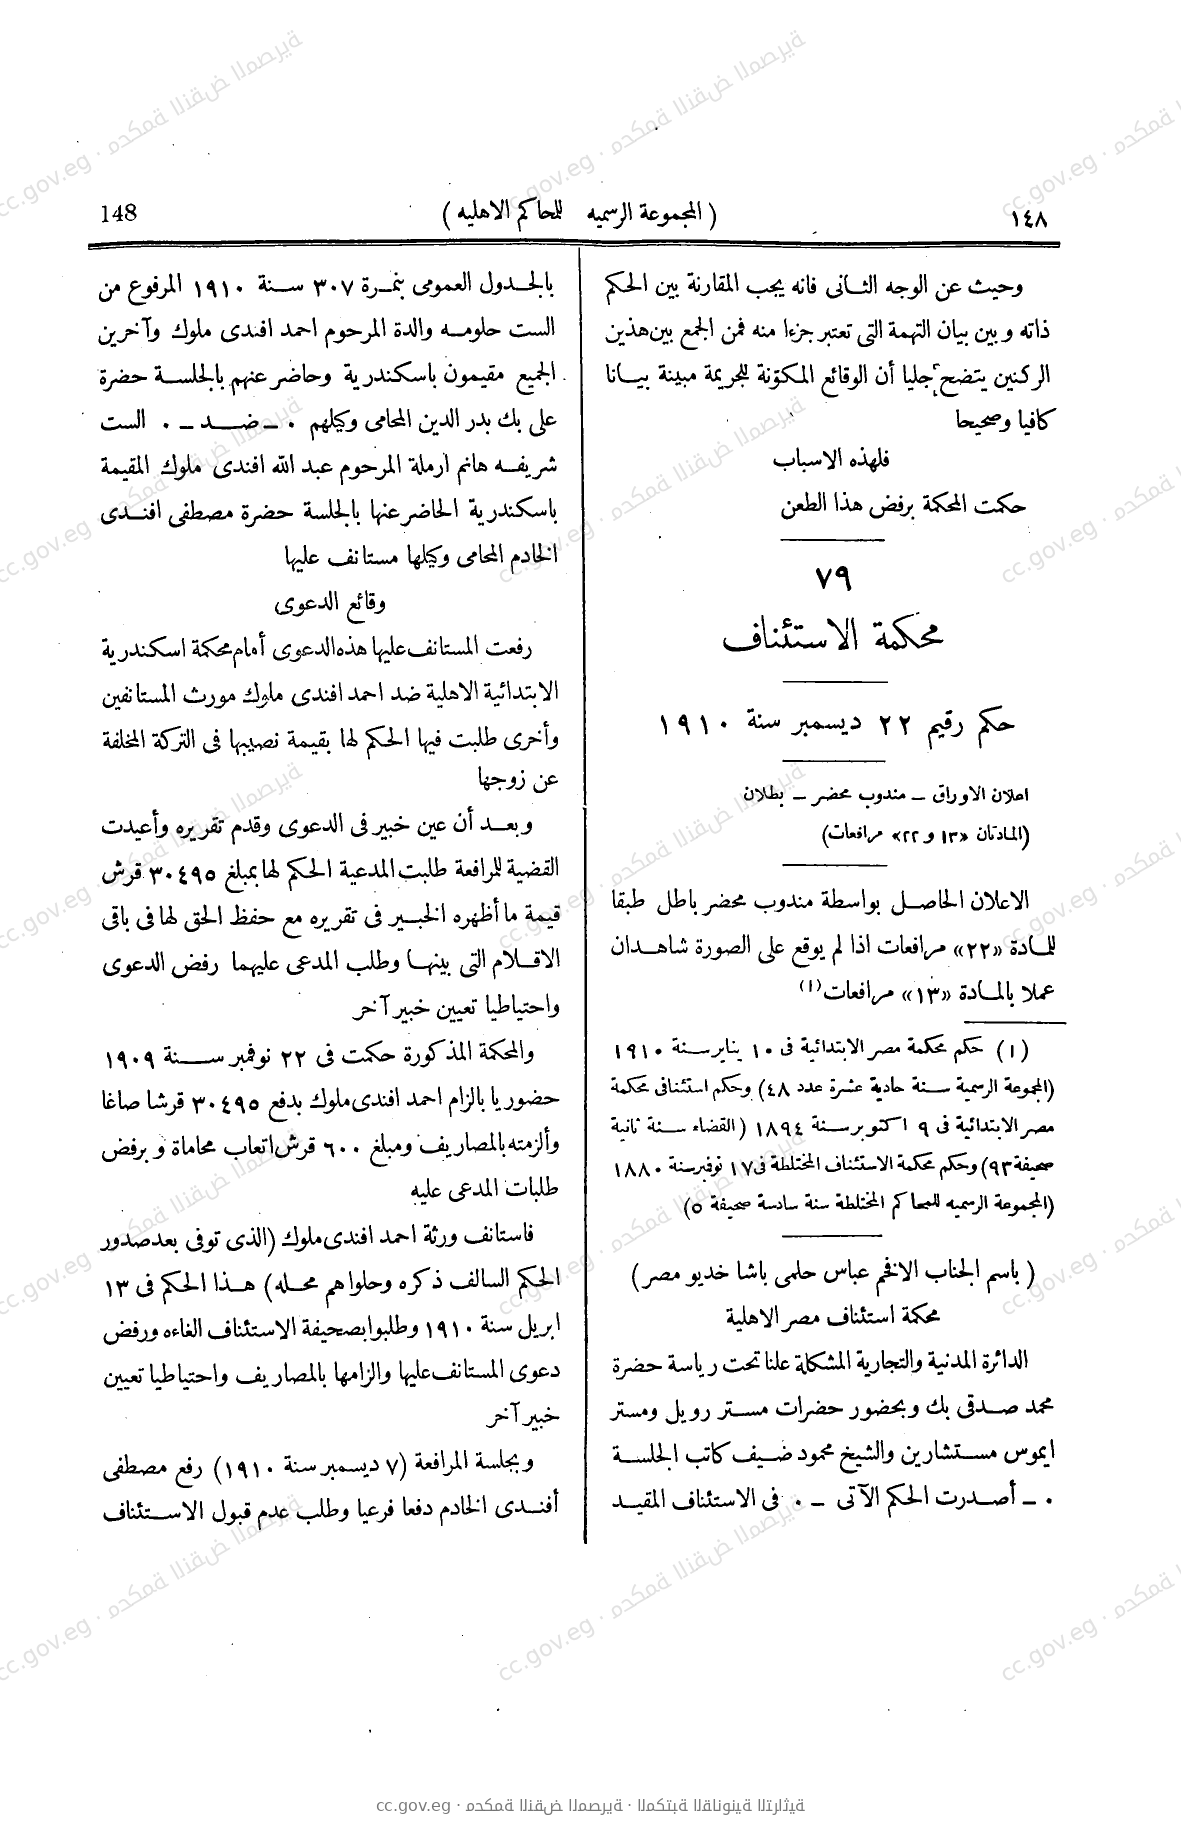 ١٤٨
( المجموعة الرسميه للمحاكم الاهليه )
148
وحيث عن الوجه الثانى فانه يجب المقارنة بين الحكم
ذاته وبين بيان التهمة التى تعتبر جزءا منه فمن الجمع بين هذين
الركنين يتضح جليا أن الوقائع المكوّنة للجريمة مبينة بيانا
كافيا وصحيحا
فلهذه الاسباب
حكمت المحكمة برفض هذا الطعن
٧٩
محكمة الاستئناف
حكم رقيم ٢٢ ديسمبر سنة ١٩١٠
اعلان الاوراق – مندوب محضر – بطلان
(المادتان «١٣ و ٢٢» مرافعات)
الاعلان الحاصل بواسطة مندوب محضر باطل طبقا
للمادة «٢٢» مرافعات اذا لم يوقع على الصورة شاهدان
عملا بالمادة «١٣» مرافعات(١)
(١) حكم محكمة مصر الابتدائية فى ١٠ يناير سنة ١٩١٠
(المجموعة الرسمية سنة حادية عشرة عدد ٤٨) وحكم استئنافى محكمة
مصر الابتدائية فى ٩ اكتوبر سنة ١٨٩٤ (القضاء سنة ثانية
صحيفة ٩٣) وحكم محكمة الاستئناف المختلطة فى ١٧ نوفبر سنة ١٨٨٠
(المجموعة الرسميه للمحاكم المختلطة سنة سادسة صحيفة ٥)
( باسم الجناب الافخم عباس حلمى باشا خديو مصر )
محكمة استئناف مصر الاهلية
الدائرة المدنية والتجارية المشكلة علنا تحت رياسة حضرة
محمد صدقى بك وبحضور حضرات مستر رويل ومستر
ايموس مستشارين والشيخ محمود ضيف كاتب الجلسة
٠ – أصدرت الحكم الآتى – ٠ فى الاستئناف المقيد
بالجدول العمومى بنمرة ٣٠٧ سنة ١٩١٠ المرفوع من
الست حلومه والدة المرحوم احمد افندى ملوك وآخرين
الجميع مقيمون باسكندرية وحاضر عنهم بالجلسة حضرة
على بك بدر الدين المحامى وكيلهم ٠ – ضد – ٠ الست
شريفه هانم ارملة المرحوم عبد الله افندى ملوك المقيمة
باسكندرية الحاضر عنها بالجلسة حضرة مصطفى افندى
الخادم المحامى وكيلها مستانف عليها
وقائع الدعوى
رفعت المستانف عليها هذه الدعوى أمام محكمة اسكندرية
الابتدائية الاهلية ضد احمد افندى ملوك مورث المستانفين
وأخرى طلبت فيها الحكم لها بقيمة نصيبها فى التركة المخلفة
عن زوجها
وبعد أن عين خبير فى الدعوى وقدم تقريره وأعيدت
القضية للمرافعة طلبت المدعية الحكم لها بمبلغ ٣٠٤٩٥ قرش
قيمة ما أظهره الخبير فى تقريره مع حفظ الحق لها فى باقى
الاقلام التى بينها وطلب المدعى عليهما رفض الدعوى
واحتياطيا تعيين خبير آخر
والمحكمة المذكورة حكمت فى ٢٢ نوفمبر سنة ١٩٠٩
حضوريا بالزام احمد افندى ملوك بدفع ٣٠٤٩٥ قرشا صاغا
وألزمته بالمصاريف ومبلغ ٦٠٠ قرش اتعاب محاماة وبرفض
طلبات المدعى عليه
فاستانف ورثة احمد افندى ملوك (الذى توفى بعد صدور
الحكم السالف ذكره وحلوا هم محله) هذا الحكم فى ١٣
ابريل سنة ١٩١٠ وطلبوا بصحيفة الاستئناف الغاءه ورفض
دعوى المستانف عليها والزامها بالمصاريف واحتياطيا تعيين
خبير آخر
وبجلسة المرافعة (٧ ديسمبر سنة ١٩١٠) رفع مصطفى
أفندى الخادم دفعا فرعيا وطلب عدم قبول الاستئناف
cc.gov.eg · محكمة النقض المصرية · المكتبة القانونية التراثية